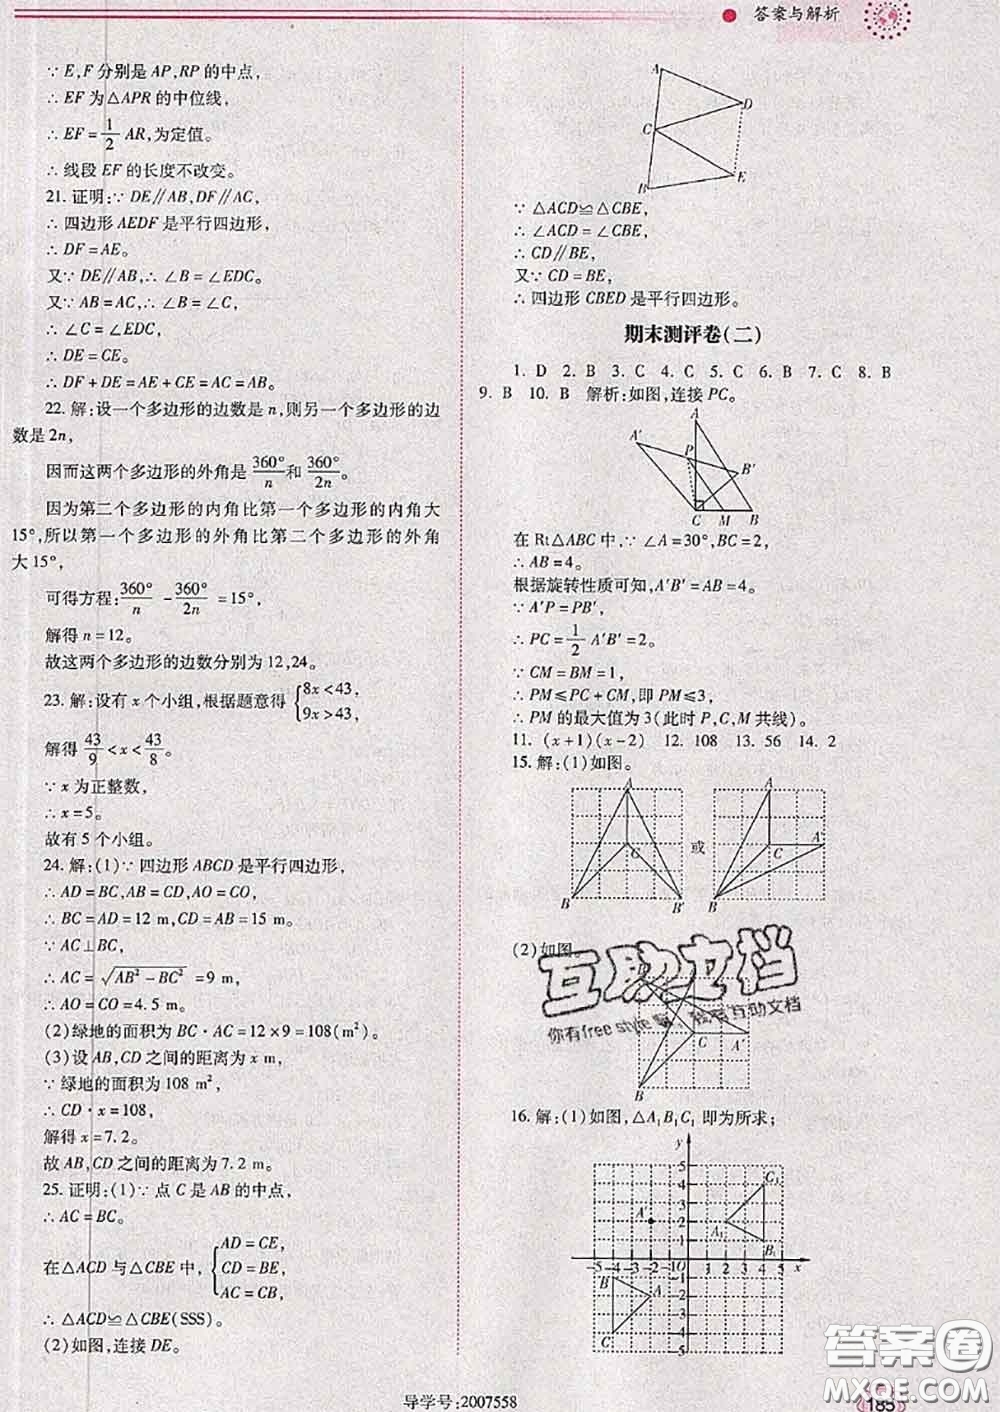 答案与解析
∵ E,F 分别是 AP,RP 的中点,
∴ EF 为△APR 的中位线,
∴ EF = 1/2 AR,为定值。
∴ 线段 EF 的长度不改变。
21. 证明:∵ DE∥AB,DF∥AC,
∴ 四边形 AEDF 是平行四边形,
∴ DF = AE。
又∵ DE∥AB,∴ ∠B = ∠EDC。
又∵ AB = AC,∴ ∠B = ∠C,
∴ ∠C = ∠EDC,
∴ DE = CE。
∴ DF + DE = AE + CE = AC = AB。
22. 解:设一个多边形的边数是 n,则另一个多边形的边
数是 2n,
因而这两个多边形的外角是 360°/n 和 360°/2n。
因为第二个多边形的内角比第一个多边形的内角大
15°,所以第一个多边形的外角比第二个多边形的外角
大 15°,
可得方程: 360°/n - 360°/2n = 15°,
解得 n = 12。
故这两个多边形的边数分别为 12,24。
23. 解:设有 x 个小组,根据题意得 { 8x < 43,
9x > 43,
解得 43/9 < x < 43/8。
∵ x 为正整数,
∴ x = 5。
故有 5 个小组。
24. 解:(1)∵ 四边形 ABCD 是平行四边形,
∴ AD = BC,AB = CD,AO = CO,
∴ BC = AD = 12 m,CD = AB = 15 m。
∵ AC⊥BC,
∴ AC = √(AB² − BC²) = 9 m,
∴ AO = CO = 4.5 m。
(2)绿地的面积为 BC · AC = 12 × 9 = 108(m²)。
(3)设 AB,CD 之间的距离为 x m,
∵ 绿地的面积为 108 m²,
∴ CD · x = 108,
解得 x = 7.2。
故 AB,CD 之间的距离为 7.2 m。
25. 证明:(1)∵ 点 C 是 AB 的中点,
∴ AC = BC。
在△ACD 与△CBE 中, { AD = CE,
CD = BE,
AC = CB,
∴ △ACD≌△CBE(SSS)。
(2)如图,连接 DE。
A
D
C
E
B
∵ △ACD≌△CBE,
∴ ∠ACD = ∠CBE,
∴ CD∥BE,
又∵ CD = BE,
∴ 四边形 CBED 是平行四边形。
期末测评卷(二)
1. D 2. B 3. C 4. C 5. C 6. B 7. C 8. B
9. B 10. B 解析:如图,连接 PC。
A
A′
P
B′
C M B
在 Rt△ABC 中,∵ ∠A = 30°,BC = 2,
∴ AB = 4。
根据旋转性质可知,A′B′ = AB = 4。
∵ A′P = PB′,
∴ PC = 1/2 A′B′ = 2。
∵ CM = BM = 1,
∴ PM ≤ PC + CM,即 PM ≤ 3,
∴ PM 的最大值为 3(此时 P,C,M 共线)。
11. (x + 1)(x − 2) 12. 108 13. 56 14. 2
15. 解:(1)如图。
A A
C 或 C A′
B B′ B
(2)如图
互助文档
你有free style
互助文档
C A′
B
16. 解:(1)如图,△A₁B₁C₁ 即为所求;
y
5
4
3
2
1
A′ A₁ B₁ C₁
-5 -4 -3 -2 -1 O 1 2 3 4 5 x
-1
-2
-3
-4
-5
B A C
导学号:2007558
答案圈
MXQE.COM
185